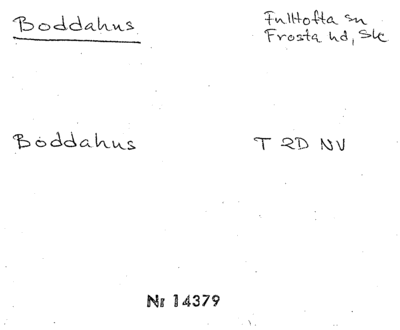 Boddahus
Fulltofta sn
Frosta hd, Sk
Boddahus
T 2D NV
Nr 14379